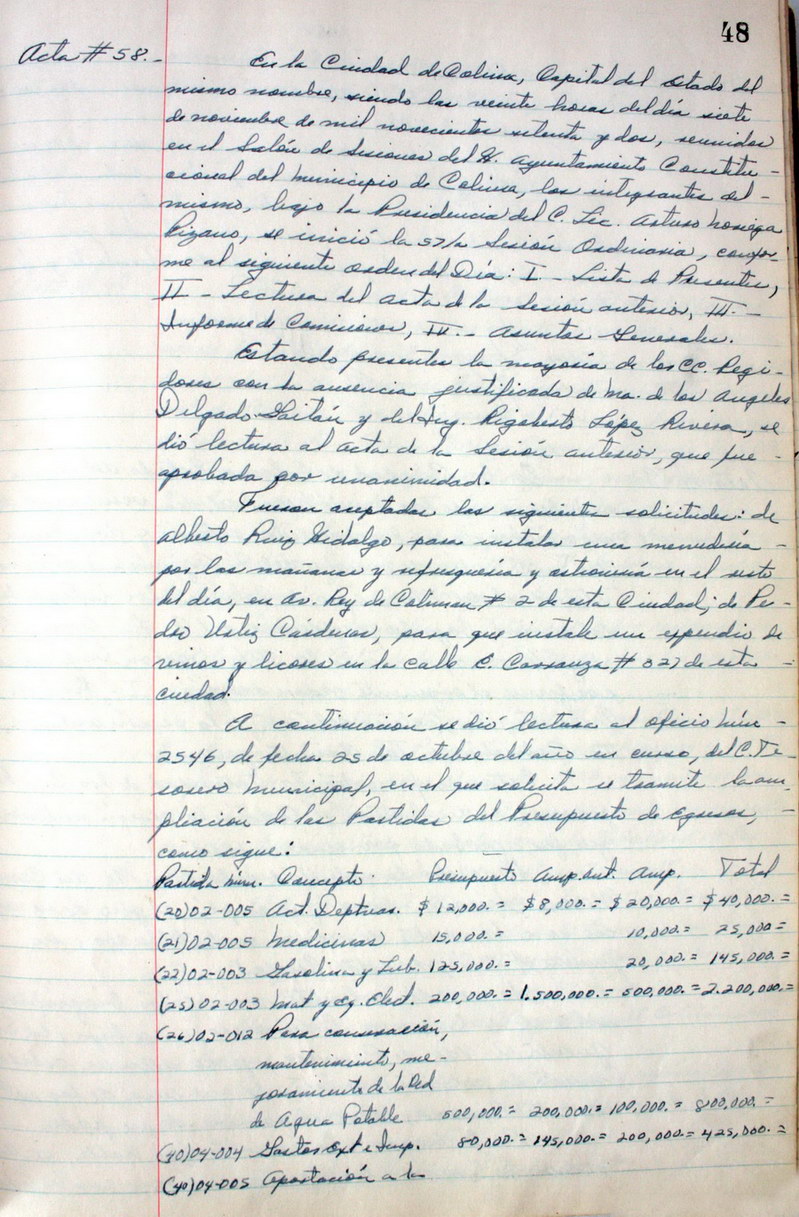 48
Acta # 58.-
En la Ciudad de Colima, Capital del Estado del
mismo nombre, siendo las veinte horas del día siete
de noviembre de mil novecientos setenta y dos, reunidos
en el Salón de Sesiones del H. Ayuntamiento Constitu-
cional del Municipio de Colima, los integrantes del -
mismo, bajo la Presidencia del C. Lic. Arturo Noriega
Pizano, se inició la 57/a Sesión Ordinaria, confor-
me al siguiente orden del Día: I.- Lista de Presentes,
II.- Lectura del acta de la Sesión anterior, III.-
Informe de Comisiones, IV.- Asuntos Generales.
Estando presentes la mayoría de los CC. Regi-
dores con la ausencia justificada de Ma. de los Angeles
Delgado Gaitán y del Ing. Rigoberto López Rivera, se
dió lectura al acta de la Sesión anterior, que fue -
aprobada por unanimidad.
Fueron aceptadas las siguientes solicitudes: de
Alberto Ruiz Hidalgo, para instalar una menudería -
por las mañanas y refresquería y ostionería en el resto
del día, en Av. Rey de Coliman # 2 de esta Ciudad; de Pe-
dro Ustiz Cárdenas, para que instale un expendio de
vinos y licores en la calle E. Carranza # 327 de esta -
ciudad.
A continuación se dió lectura al oficio Núm -
2546, de fecha 25 de octubre del año en curso, del C. Te-
sorero Municipal, en el que solicita se tramite la am-
pliación de las Partidas del Presupuesto de Egresos, -
como sigue:
Partida Núm. Concepto. Presupuesto Amp. Ant. Amp. Total
(20)02-005 Act. Deptvas. $ 12,000.= $ 8,000.= $ 20,000.= $ 40,000.=
(21)02-005 Medicinas 15,000.= 10,000.= 25,000=
(22)02-003 Gasolina y Lub. 125,000.= 20,000.= 145,000.=
(25)02-003 Mat y Eq. Elect. 200,000.= 1.500,000.= 500,000.= 2.200,000.=
(26)02-012 Para conservación,
mantenimiento, me-
joramiento de la Red
de Agua Potable 500,000.= 200,000.= 100,000.= 800,000.=
(40)04-004 Gastos Ext e Imp. 80,000.= 145,000.= 200,000.= 425,000.=
(40)04-005 Aportación a la